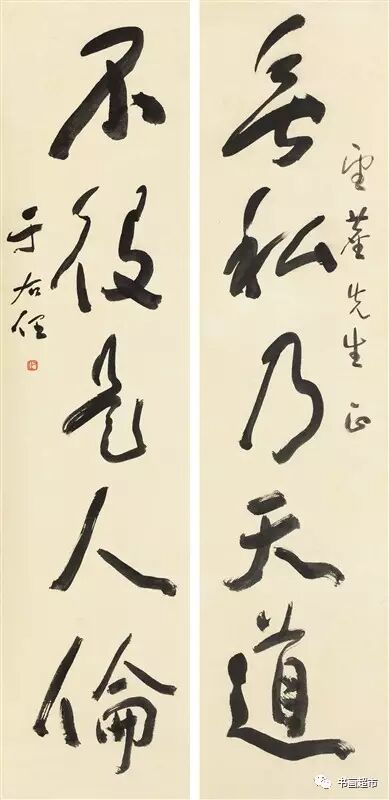 先生正
無私乃天道
不役是人倫
于右任
书画超市